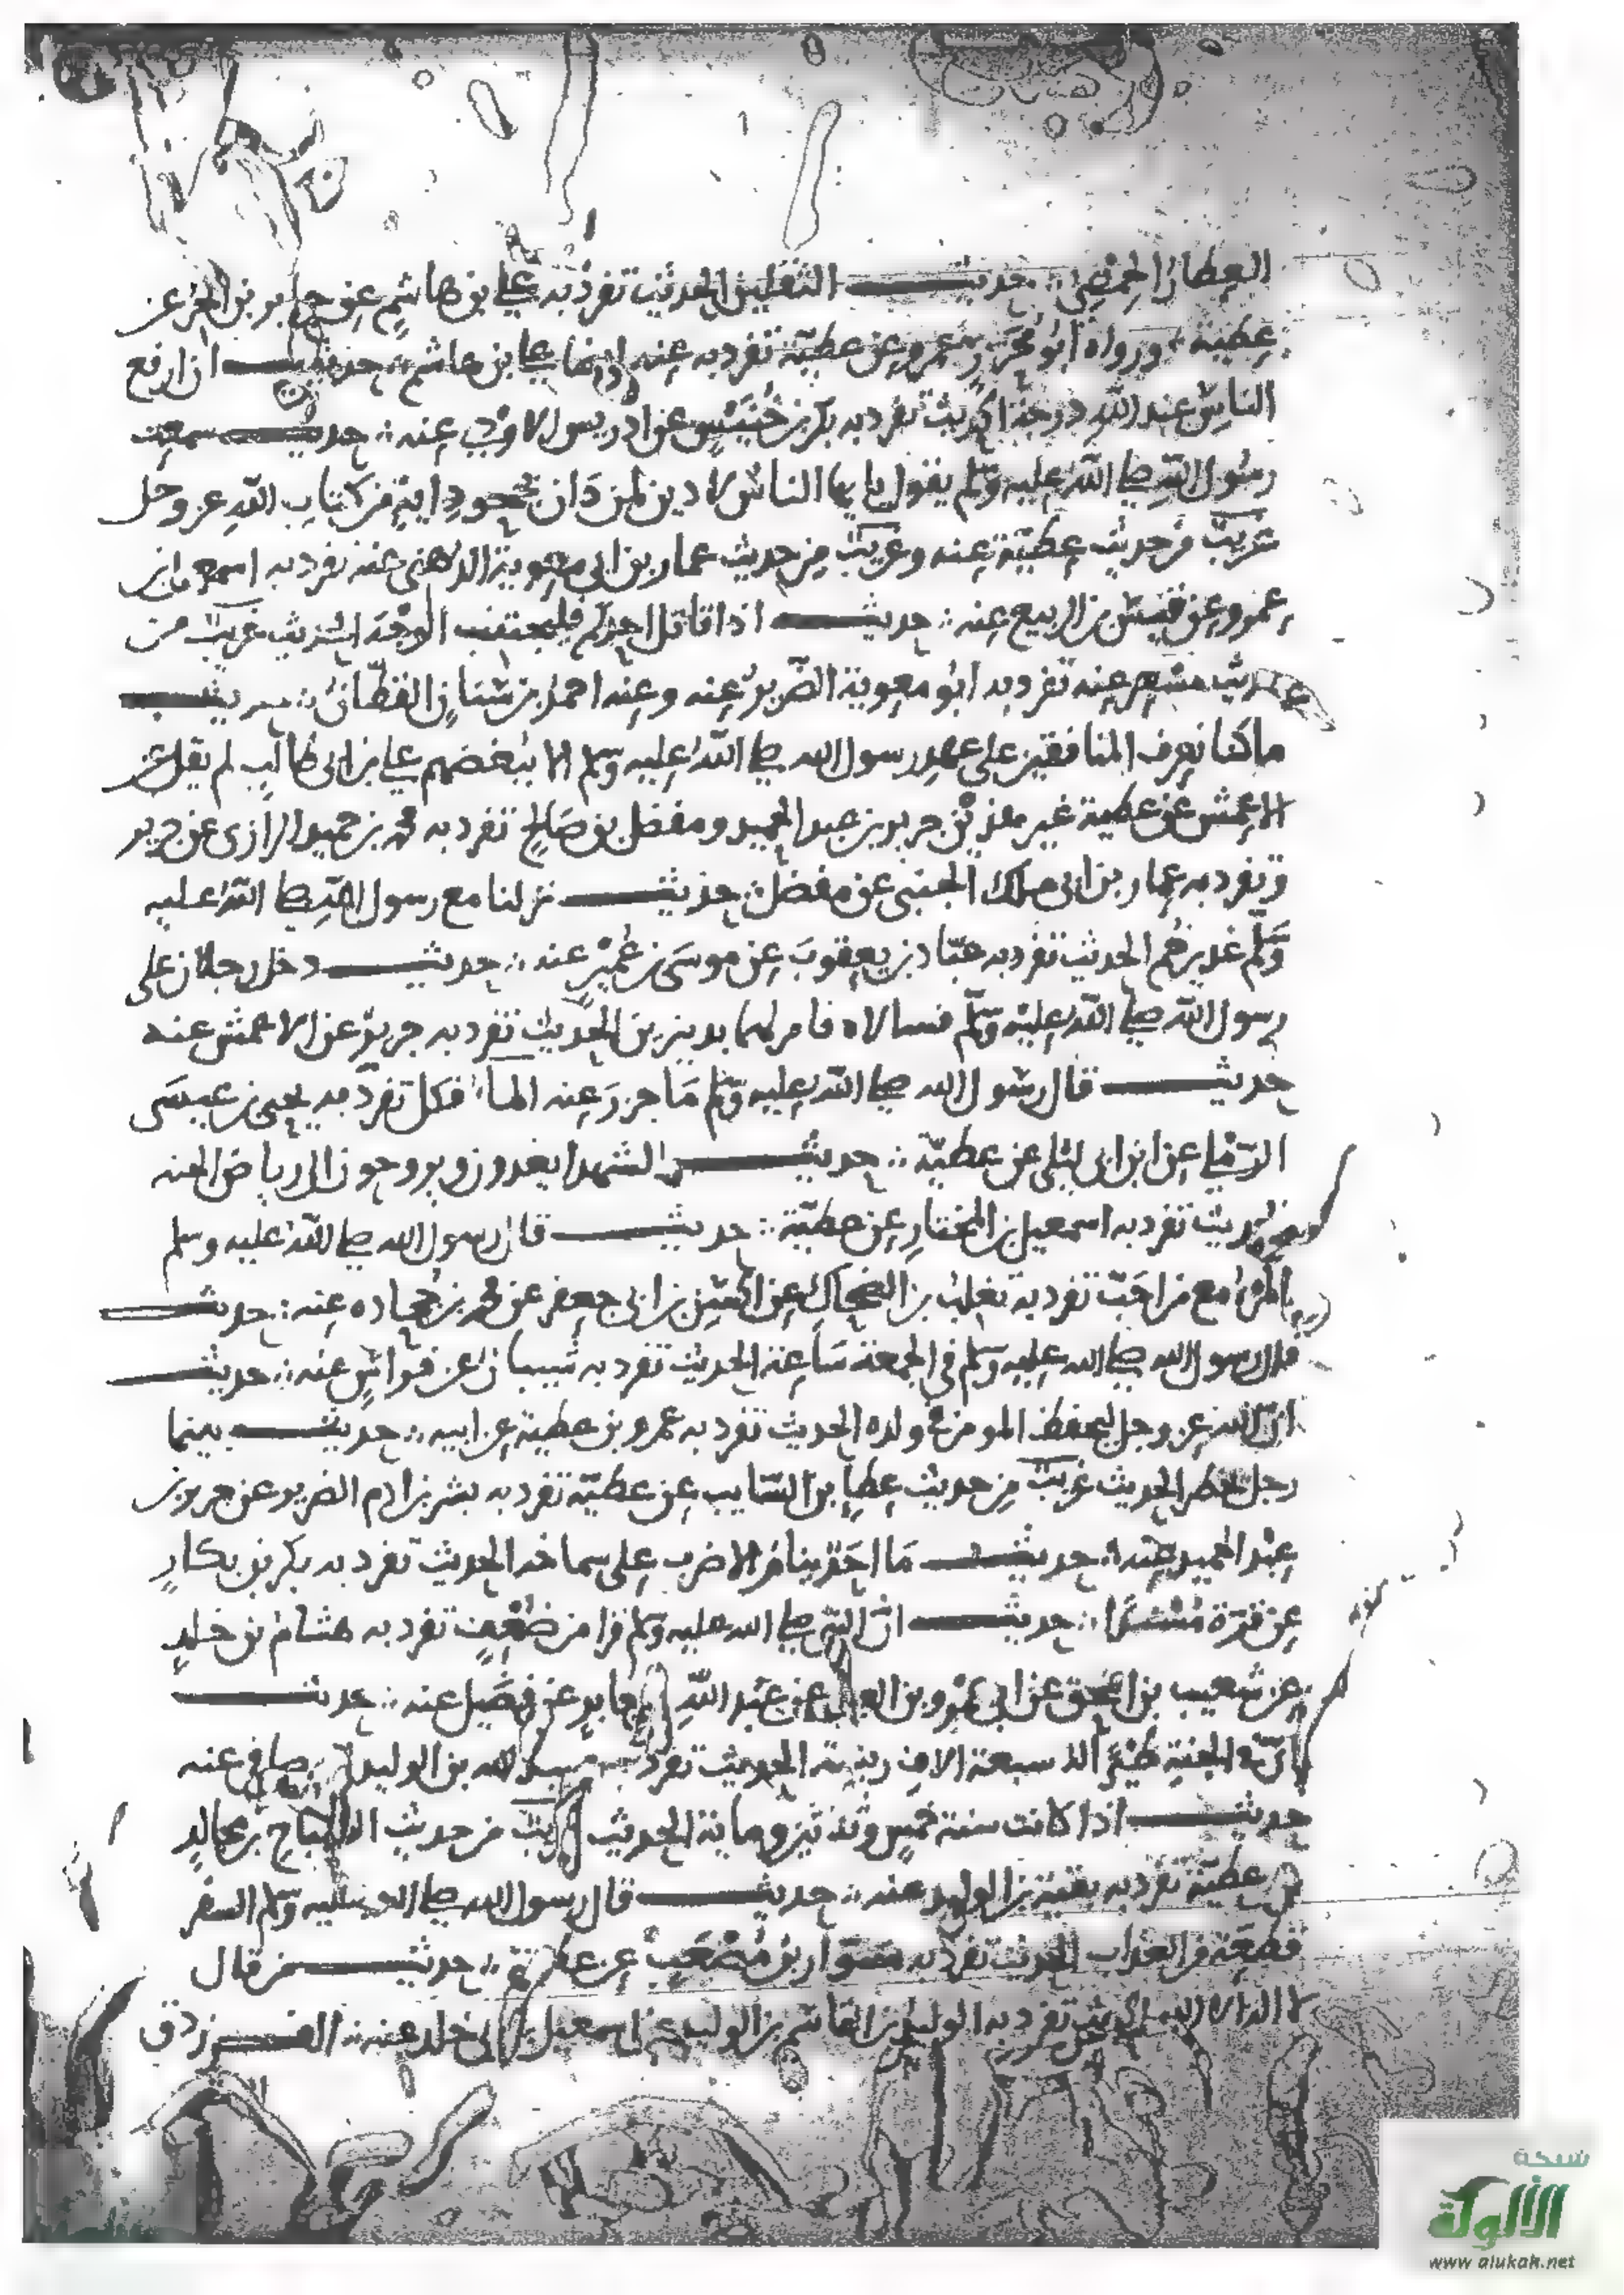 العطار الحمصي ∴ حديث الثقلين الحديث تفرد به علي بن هاشم عن جابر بن الحر عن
عطية ورواه أبو عمرو عن عطية تفرد به عنه ايضا علي بن هاشم ∴ حديث ان ارفع
الناس عند الله درجة الحديث تفرد به بكر بن خنيس عن ادريس الاودي عنه ∴ حديث سمعت
رسول الله صلى الله عليه وسلم يقول يا يها الناس لا دين لمن دان بجحود اية من كتاب الله عز وجل
غريب من حديث عطية عنه وغريب من حديث عمار بن ابي معوية الدهني عنه تفرد به اسمعيل بن
عمرو عن قيس بن الربيع عنه ∴ حديث اذا قاتل احدكم فليجتنب الوجه الحديث غريب من
حديث مسعر عنه تفرد به ابو معوية الضرير عنه وعنه احمد بن سنان القطان ∴ حديث
ما كنا نعرف المنافقين على عهد رسول الله صلى الله عليه وسلم الا ببغضهم علي بن ابي طالب لم يقل عن
الاعمش عن عطية غير هذين جرير بن عبد الحميد ومفضل بن صالح تفرد به محمد بن حميد الرازي عن جرير
وتفرد به عمار بن ابي ملك الجنبي عن مفضل ∴ حديث نزلنا مع رسول الله صلى الله عليه
وسلم غدير خم الحديث تفرد به عباد بن يعقوب عن موسى بن عمير عنه ∴ حديث دخل رجلان على
رسول الله صلى الله عليه وسلم فسالاه فامر لهما بدينرين الحديث تفرد به جرير عن الاعمش عنه
حديث قال رسول الله صلى الله عليه وسلم ما جزر عنه الما فكل تفرد به يحيى بن عيسى
الرملي عن ابن ابي ليلى عن عطية ∴ حديث الشهدا يغدون ويروحون الى رياض الجنه
الحديث تفرد به اسمعيل بن المختار عن عطية ∴ حديث قال رسول الله صلى الله عليه وسلم
المرء مع من احب تفرد به تغلب بن الضحاك عن الحسن بن ابي جعفر عن محمد بن جحاده عنه ∴ حديث
قال رسول الله صلى الله عليه وسلم في الجمعة ساعة الحديث تفرد به شيبان عن فراس عنه ∴ حديث
ان الله عز وجل ليحفظ المومن في ولده الحديث تفرد به عمرو بن عطية عن ابيه ∴ حديث بينما
رجل يخطر الحديث غريب من حديث عطا بن السايب عن عطية تفرد به بشر بن ادم الضرير عن جرير بن
عبد الحميد عنه ∴ حديث ما احد منا الاضرب على سماخه الحديث تفرد به بكر بن بكار
عن قرة ∴ حديث ان النبي صلى الله عليه وسلم قرا من ضعف تفرد به هشام بن خلد
عن شعيب بن اسحق عن ابي عمرو بن العلا عن عبد الله بن جابر عن فضيل عنه ∴ حديث
ان في الجنة طيرا له سبعة الاف ريشة الحديث تفرد به عبيد الله بن الوليد الوصافي عنه
حديث اذا كانت سنة خمس وثلاثين وماية الحديث غريب من حديث الصباح بن مجالد
عن عطية تفرد به بقية بن الوليد عنه ∴ حديث قال رسول الله صلى الله عليه وسلم السفر
قطعة من العذاب الحديث تفرد به سوار بن مصعب عن عطية ∴ حديث من قال
لا اله الا الله الحديث تفرد به الوليد بن القاسم بن الوليد عن اسمعيل بن ابي خلد عنه ∴ الفرزدق
شبكة
الألوكة
www.alukah.net